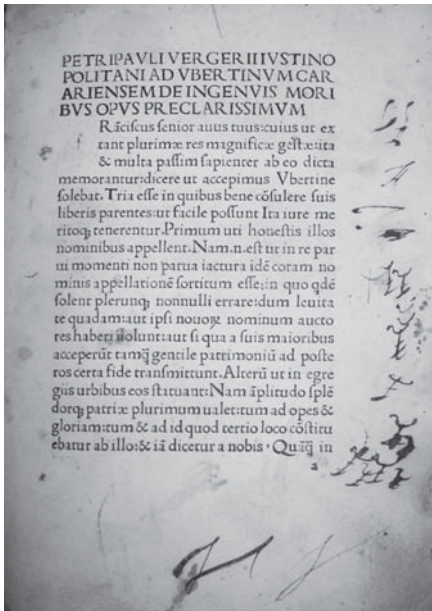 PETRI PAVLI VERGERII IVSTINO
POLITANI AD VBERTINVM CAR
ARIENSEM DE INGENVIS MORI
BVS OPVS PRECLARISSIMVM
Rãciscus senior auus tuus:cuius ut ex
tant plurimæ res magnificæ gestæ:ita
& multa passim sapienter ab eo dicta
memorantur:dicere ut accepimus Vbertine
solebat. Tria esse in quibus bene cõsulere suis
liberis parentes:ut facile possunt Ita iure me
ritoq; tenerentur. Primum uti honestis illos
nominibus appellent. Nam.n.est ut in re par
ui momenti non parua iactura idẽ coram no
minis appellationẽ sortitum esse:in quo qdẽ
solent plerunq; nonnulli errare:dum leuita
te quadam:aut ipsi nouoꝝ nominum aucto
res haberi uolunt:aut si qua a suis maioribus
acceperũt tamq̃ gentile patrimoniũ ad poste
ros certa fide transmittunt. Alterũ ut in egre
giis urbibus eos statuant: Nam ãplitudo splẽ
dorq; patriæ plurimum ualet:tum ad opes &
gloriam:tum & ad id quod tertio loco cõstitu
ebatur ab illo:& iã dicetur a nobis · Quãq̃ in
a